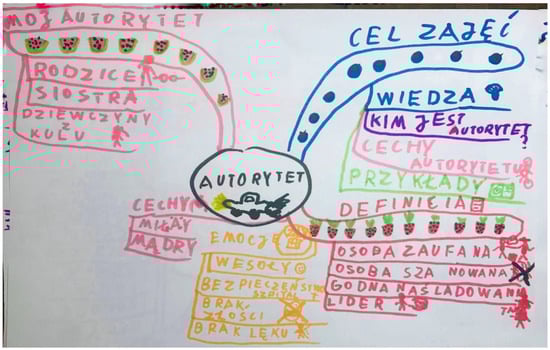 MOJ AUTORYTET
RODZICE
SIOSTRA
DZIEWCZYNY
Z
KULU
CEL ZAJĘĆ
WIEDZA
KIM JEST
AUTORYTET?
CECHY
AUTORYTETU
PRZYKŁADY
AUTORYTET
CECHY
MIŁY
MĄDRY
EMOCJE
WESOŁY
BEZPIECZEŃSTW
SZPITAL
BRAK
ZŁOŚCI
BRAK LĘKU
DEFINICJA
OSOBA ZAUFANA
OSOBA SZA NOWANA
GODNA NAŚLADOWANIA
LIDER